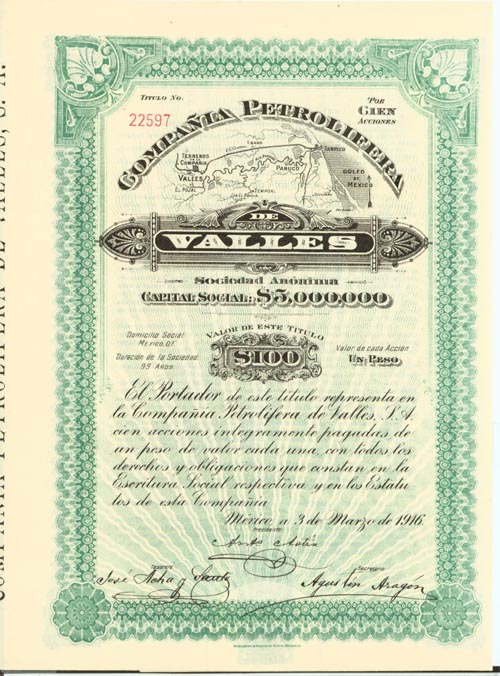 TITULO NO.
22597
POR
CIEN
ACCIONES
COMPAÑIA PETROLIFERA
TERRENOS
DE LA
COMPAÑIA
VALLES
EL PUJAL
EBANO
TAMPICO
PANUCO
TEMPOAL
GOLFO
DE
MEXICO
DE
VALLES
Sociedad Anónima
CAPITAL SOCIAL: $5,000,000
Domicilio Social
MEXICO, D.F.
Duración de la Sociedad
99 AÑOS.
VALOR DE ESTE TITULO
$100
Valor de cada Acción
UN PESO
El Portador de este título representa en
la Compañía Petrolífera de Valles, S.A.
cien acciones íntegramente pagadas de
un peso de valor cada una, con todos los
derechos y obligaciones que constan en la
Escritura Social respectiva y en los Estatu
tos de esta Compañía.
México a 3 de Marzo de 1916.
Presidente
Tesorero
José
y
Secretario
Agustín Aragón
COMPAÑIA PETROLIFERA DE VALLES, S. A.